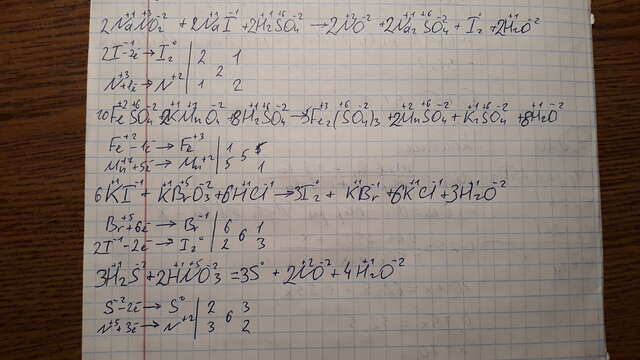 2NaNO₂ + 2NaI + 2H₂SO₄ → 2NO + 2Na₂SO₄ + I₂ + 2H₂O
2I⁻¹-2e → I₂⁰ | 2 | 1
N⁺³+e → N⁺² | 1 | 2
10FeSO₄ + 2KMnO₄ + 8H₂SO₄ → 5Fe₂(SO₄)₃ + 2MnSO₄ + K₂SO₄ + 8H₂O
Fe⁺²-e → Fe⁺³ | 1 | 5
Mn⁺⁷+5e → Mn⁺² | 5 | 1
6KI + KBrO₃ + 6HCl → 3I₂ + KBr + 6KCl + 3H₂O
Br⁺⁵+6e → Br⁻¹ | 6 | 1
2I⁻¹-2e → I₂⁰ | 2 | 3
3H₂S + 2HNO₃ = 3S⁰ + 2NO + 4H₂O
S⁻²-2e → S⁰ | 2 | 3
N⁺⁵+3e → N⁺² | 3 | 2